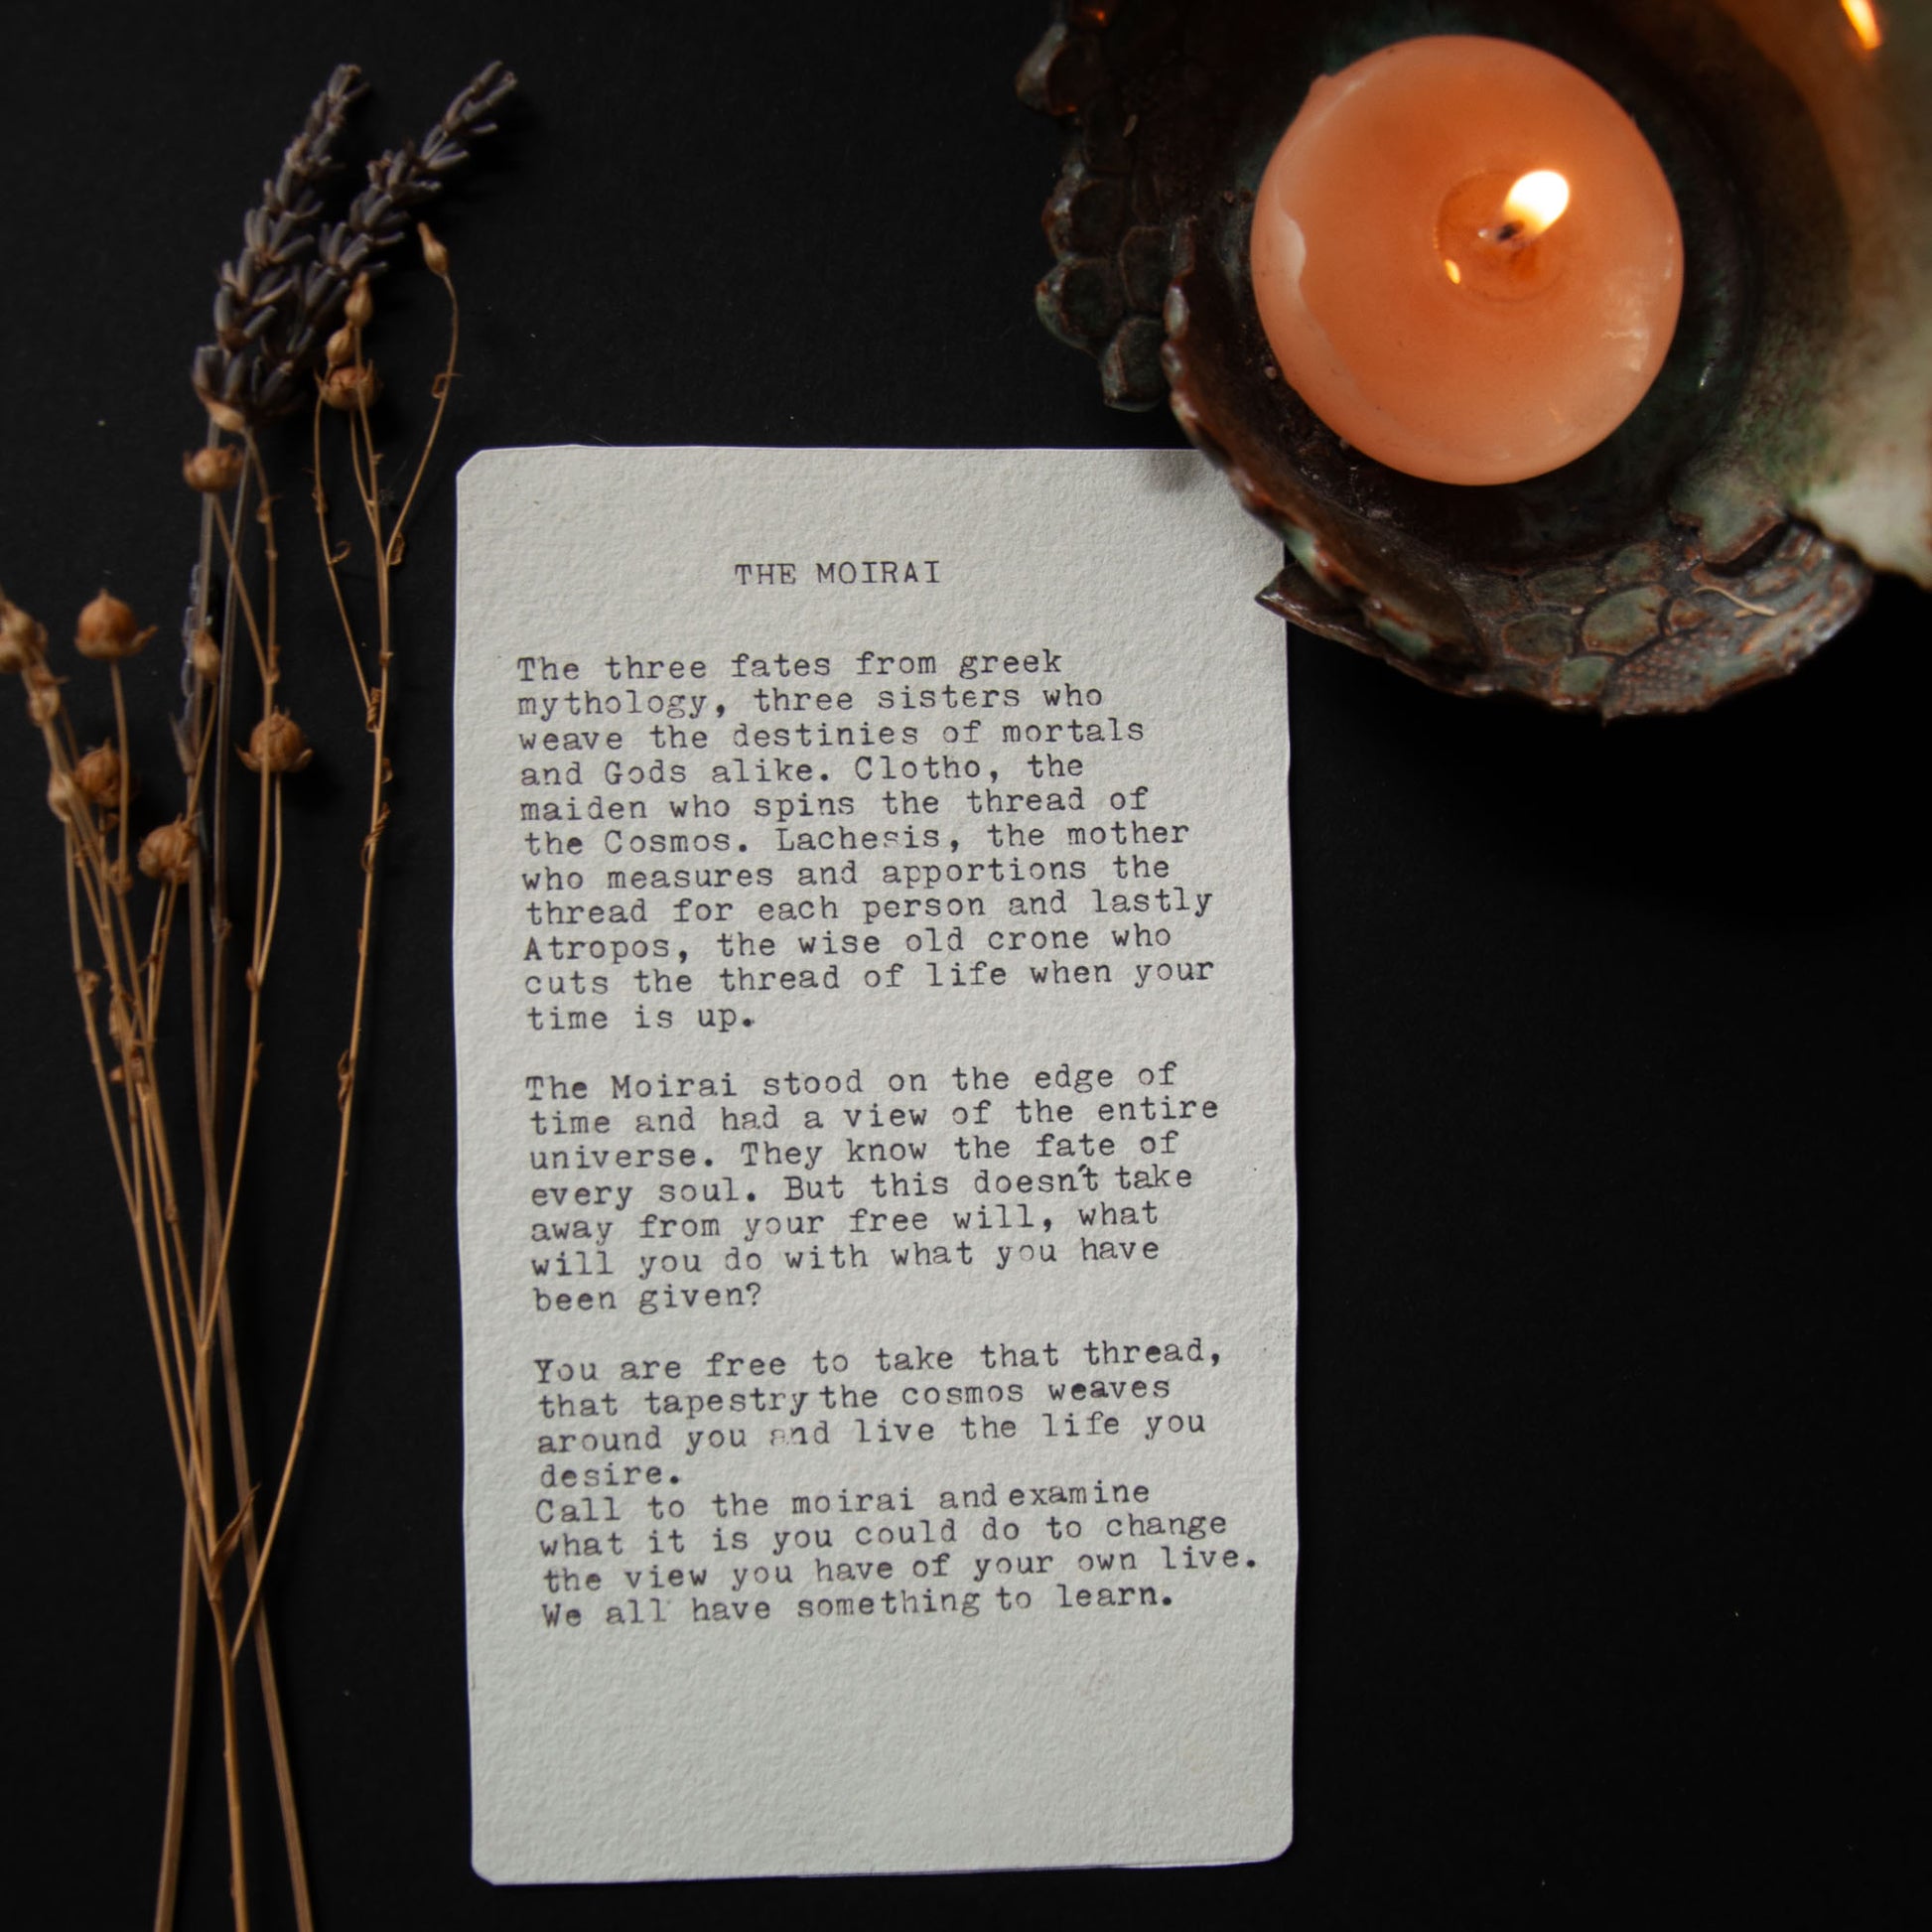 THE MOIRAI
The three fates from greek
mythology, three sisters who
weave the destinies of mortals
and Gods alike. Clotho, the
maiden who spins the thread of
the Cosmos. Lachesis, the mother
who measures and apportions the
thread for each person and lastly
Atropos, the wise old crone who
cuts the thread of life when your
time is up.
The Moirai stood on the edge of
time and had a view of the entire
universe. They know the fate of
every soul. But this doesn't take
away from your free will, what
will you do with what you have
been given?
You are free to take that thread,
that tapestry the cosmos weaves
around you and live the life you
desire.
Call to the moirai and examine
what it is you could do to change
the view you have of your own live.
We all have something to learn.